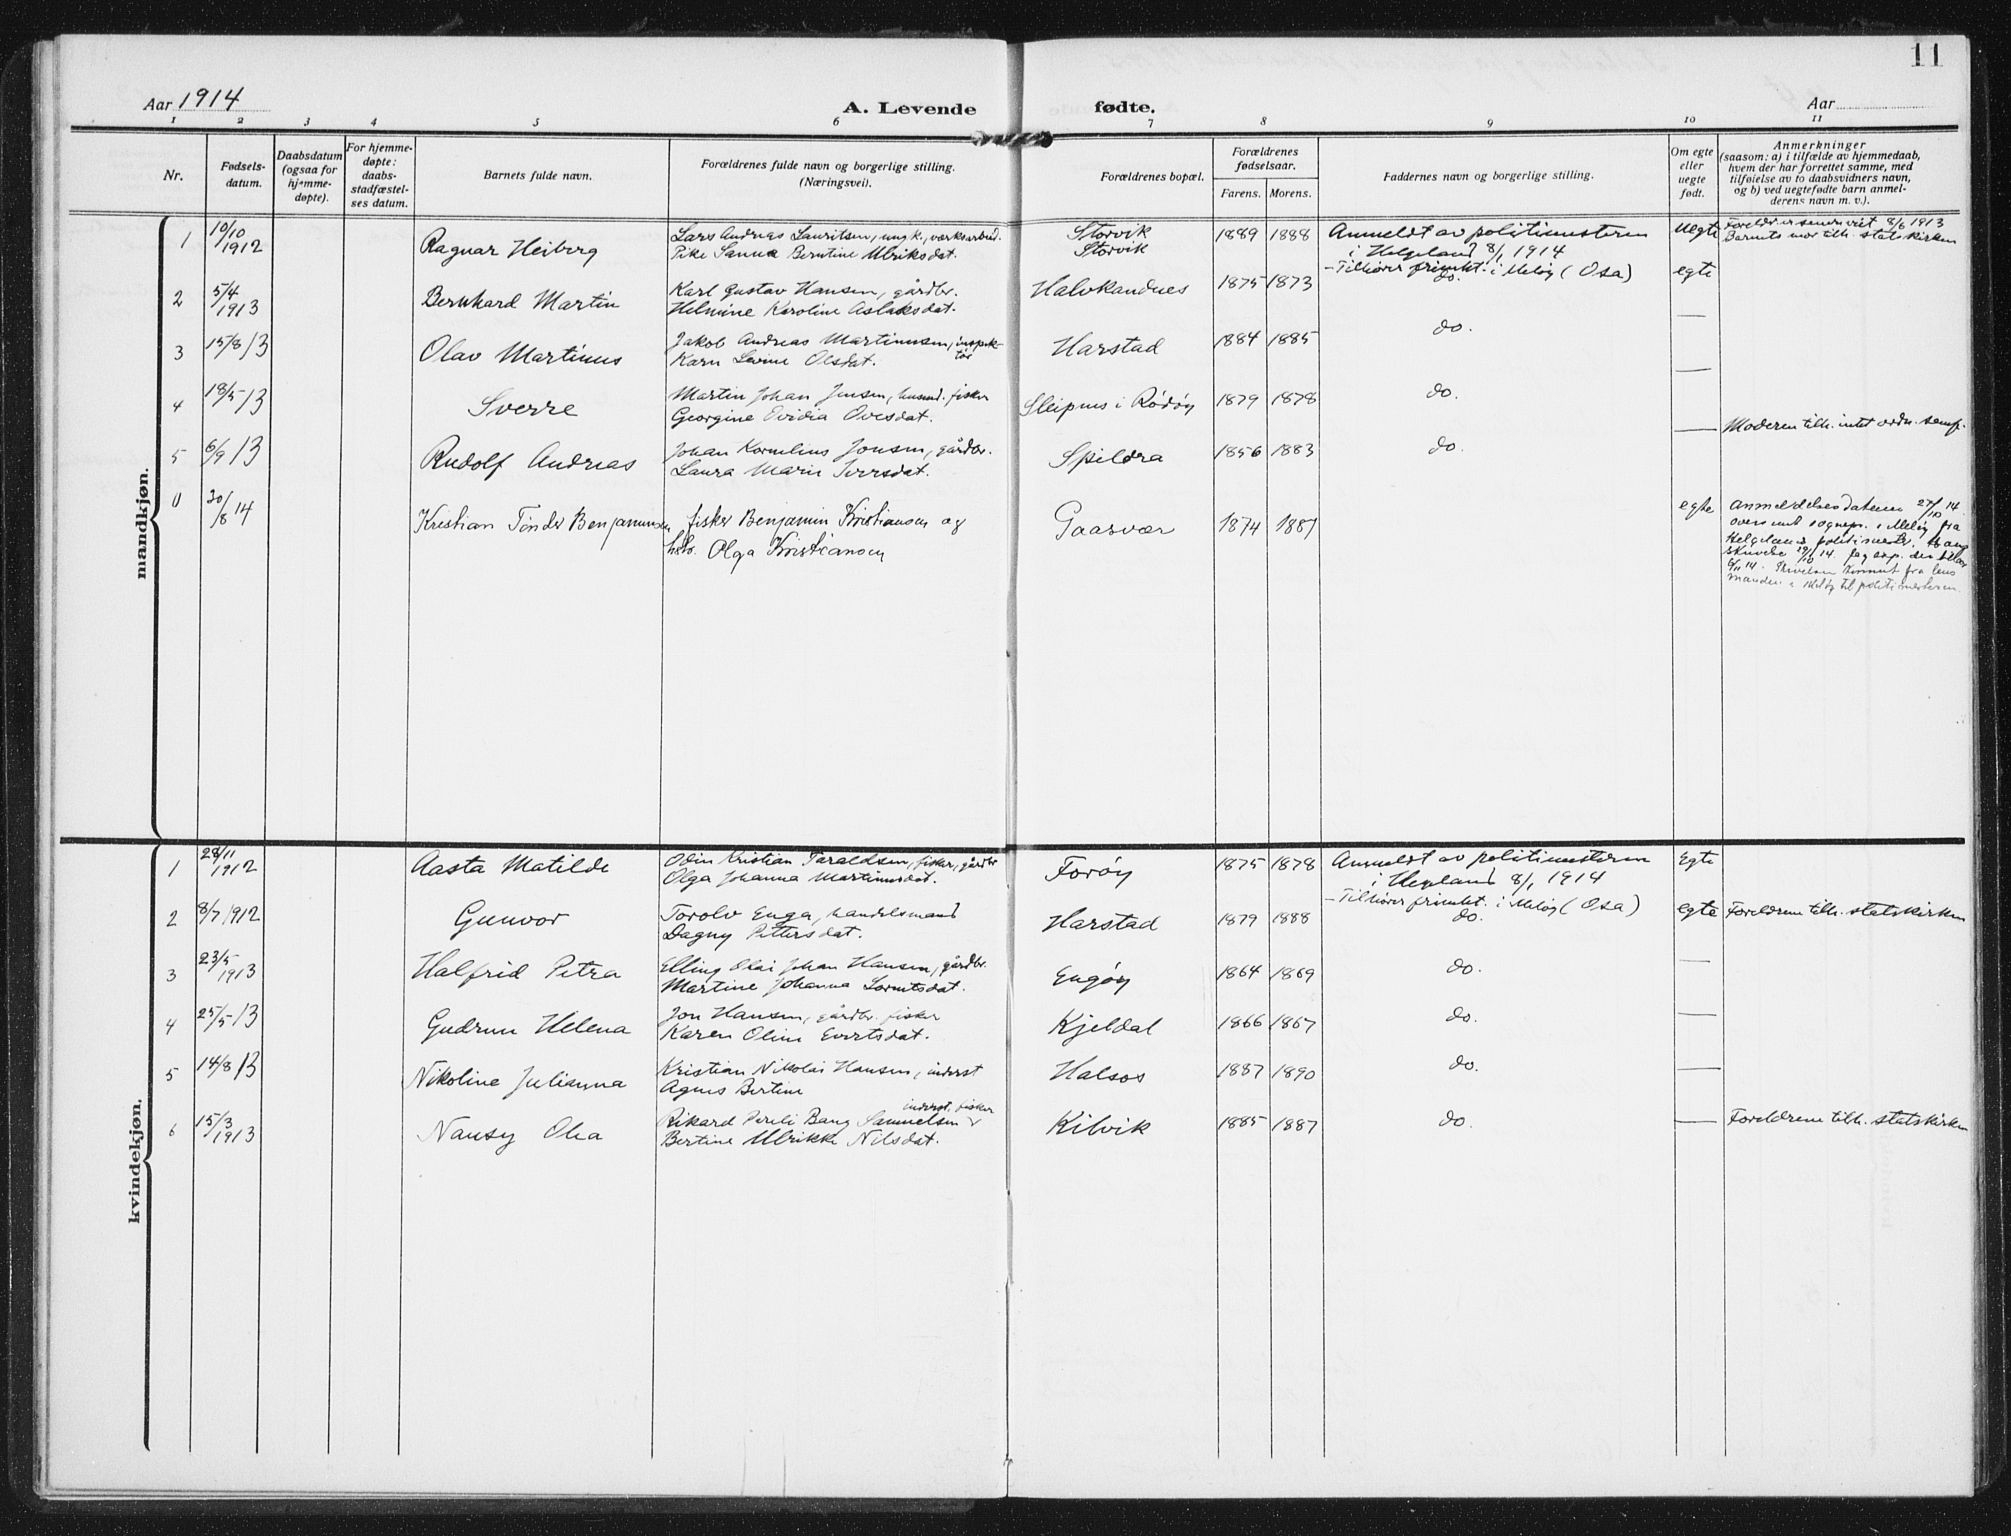 11
Aar 1914
A. Levende fødte.
Aar
1 2 3 4 5 6 7 8 9 10 11
Nr.
Fødsels-
datum.
Daabsdatum
(ogsaa for
hjemme-
døpte).
For hjemme-
døpte:
daabs-
stadfæstel-
ses datum.
Barnets fulde navn.
Forældrenes fulde navn og borgerlige stilling.
(Næringsvei).
Forældrenes bopæl.
Forældrenes
fødselsaar.
Farens. Morens.
Faddernes navn og borgerlige stilling.
Om egte
eller
uegte
født.
Anmerkninger
(saasom: a) i tilfælde av hjemmedaab,
hvem der har forrettet samme, med
tilføielse av to daabsvidners navn,
og b) ved uegtefødte barn anmel-
derens navn m. v.).
mandkjøn.
1 10/10 1912 Ragnar Heiberg
Lars Andreas Lauritsen, ungk., værksarbeid.
Pike Sanna Berntine Ulriksdat.
Storvik
Storvik
1889 1888
Anmeldt av politimesteren
i Helgeland 8/1 1914
- Tilhører frimkt. i Meløy (Osa)
Uegte
8/6 1913
Barnets mor tilh. statskirken
2 5/4 1913 Bernhard Martin
Karl Gustav Hansen, gårdbr.
Helmine Karoline Aslaksdat.
Halvkandnes 1875 1873 do. egte
3 15/8 13 Olav Martinus
Jakob Andreas Martinusen, inspek-
tør
Karn Levine Olsdat.
Harstad 1884 1885 do. —
4 18/5 13 Sverre
Martin Johan Jensen, husmd. fisker
Georgine Ovidia Ovesdat.
Sleipnes i Rødøy 1879 1878 do. —
5 6/9 13 Rudolf Andreas
Johan Kornelius Jonsen, gårdbr.
Laura Marie Iversdat.
Spildra 1856 1883 do. — Moderen tilh. intet ordn. samf.
30/8 14 Kristian Tønder Benjaminsen
fisker Benjamin Kristiansen og
hstr. Olga Kristiansen
Gaasvær 1874 1887 egte
Anmeldelses datum 27/10 14
oversendt sognepr. i Meløy fra
Helgeland politimester.
skrivelse 29/10 14.
6/11 14. Skrivelsen kommet fra lens
manden i Meløy til politimesteren.
kvindekjøn.
1 28/11 1912 Aasta Matilde
Odin Kristian Taraldsen, fisker, gårdbr
Olga Johanna Martinusdat.
Forøy 1875 1878
Anmeldt av politimesteren
i Helgeland 8/1 1914
- Tilhører frimkt. i Meløy (Osa)
Egte
2 8/7 1912 Gunvor
Torolv Enga, handelsmand
Dagny Pettersdat.
Harstad 1879 1888 do. egte Foreldrene tilh. statskirken
3 23/5 1913 Halfrid Petra
Elling Olai Johan Hansen, gårdbr.
Martine Johanna Lorntsdat.
Engøy 1864 1869 do. —
4 25/5 13 Gudrun Helena
Jon Hansen, gårdbr. fisker
Karen Oline Evertsdat.
Kjeldal 1866 1867 do. —
5 14/8 13 Nikoline Julianna
Kristian Nikolai Hansen, inderst
Agnes Bertine
Halsos 1887 1890 do. —
6 15/3 1913 Nansy Olea
inderst. fisker
Rikard Pareli Bang Samuelsen
Bertine Ulrikke Nilsdat.
Kilvik 1885 1887 do. — Foreldrene tilh. statskirken